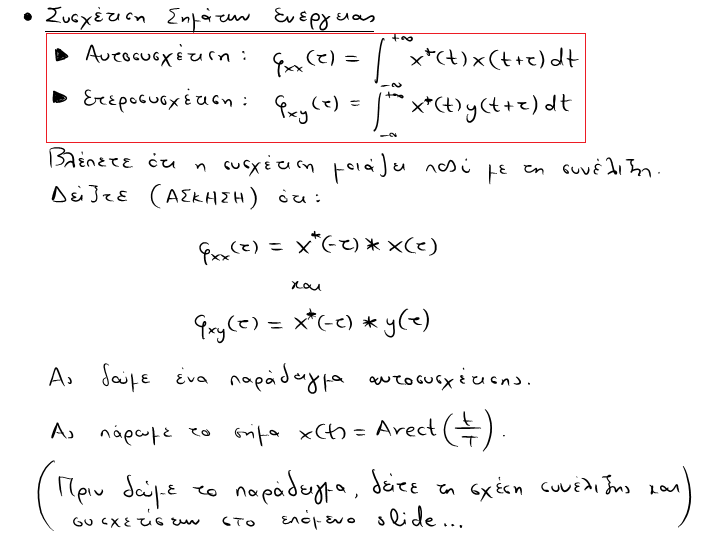 • Συσχέτιση Σημάτων Ενέργειας
▶ Αυτοσυσχέτιση : φxx(τ) = ∫_{-∞}^{+∞} x*(t) x(t+τ) dt
▶ Ετεροσυσχέτιση : φxy(τ) = ∫_{-∞}^{+∞} x*(t) y(t+τ) dt
Βλέπετε ότι η συσχέτιση μοιάζει πολύ με τη συνέλιξη.
Δείξτε (ΑΣΚΗΣΗ) ότι :
φxx(τ) = x*(-τ) * x(τ)
και
φxy(τ) = x*(-τ) * y(τ)
Ας δούμε ένα παράδειγμα αυτοσυσχέτισης.
Ας πάρουμε το σήμα x(t) = A rect(t/T).
(Πριν δούμε το παράδειγμα, δείτε τη σχέση συνέλιξης και
συσχετίσεων στο επόμενο slide...)